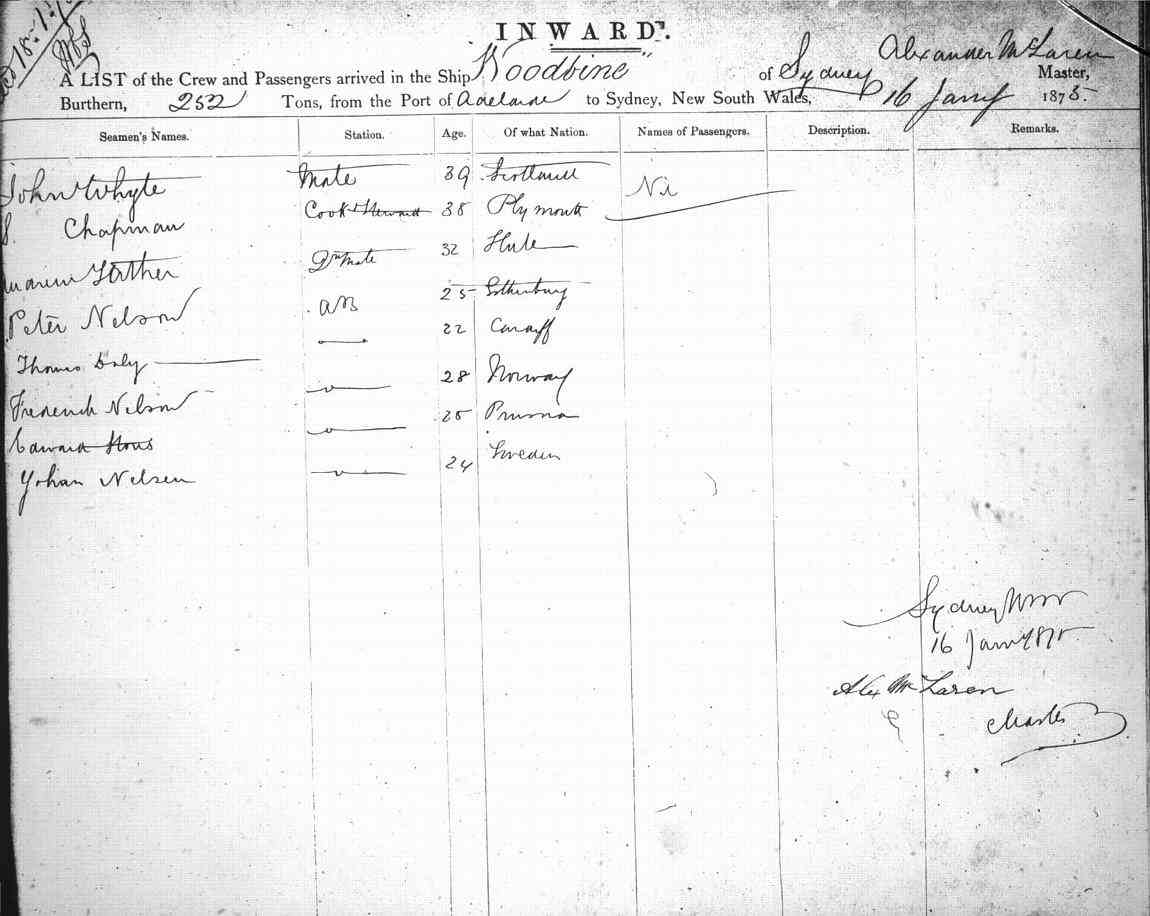 INWARD.
Alexander McLaren
A LIST of the Crew and Passengers arrived in the Ship "Woodbine" of Sydney Master,
Burthern, 252 Tons, from the Port of Adelaide to Sydney, New South Wales, 16 Jany 1875.
Seamen's Names. Station. Age. Of what Nation. Names of Passengers. Description. Remarks.
John Whyte Mate 39 Scotland Nil
S. Chapman Cook & Steward 38 Plymouth
2nd Mate 32 Hule
Peter Nelson AB 25 Gothenburg
Thomas Daly 22 Cardiff
Frederick Nelson 28 Norway
Edward 25 Prussia
Yohan Nelsen 24 Sweden
Sydney NSW
16 Jany 1875
Alex McLaren
Master